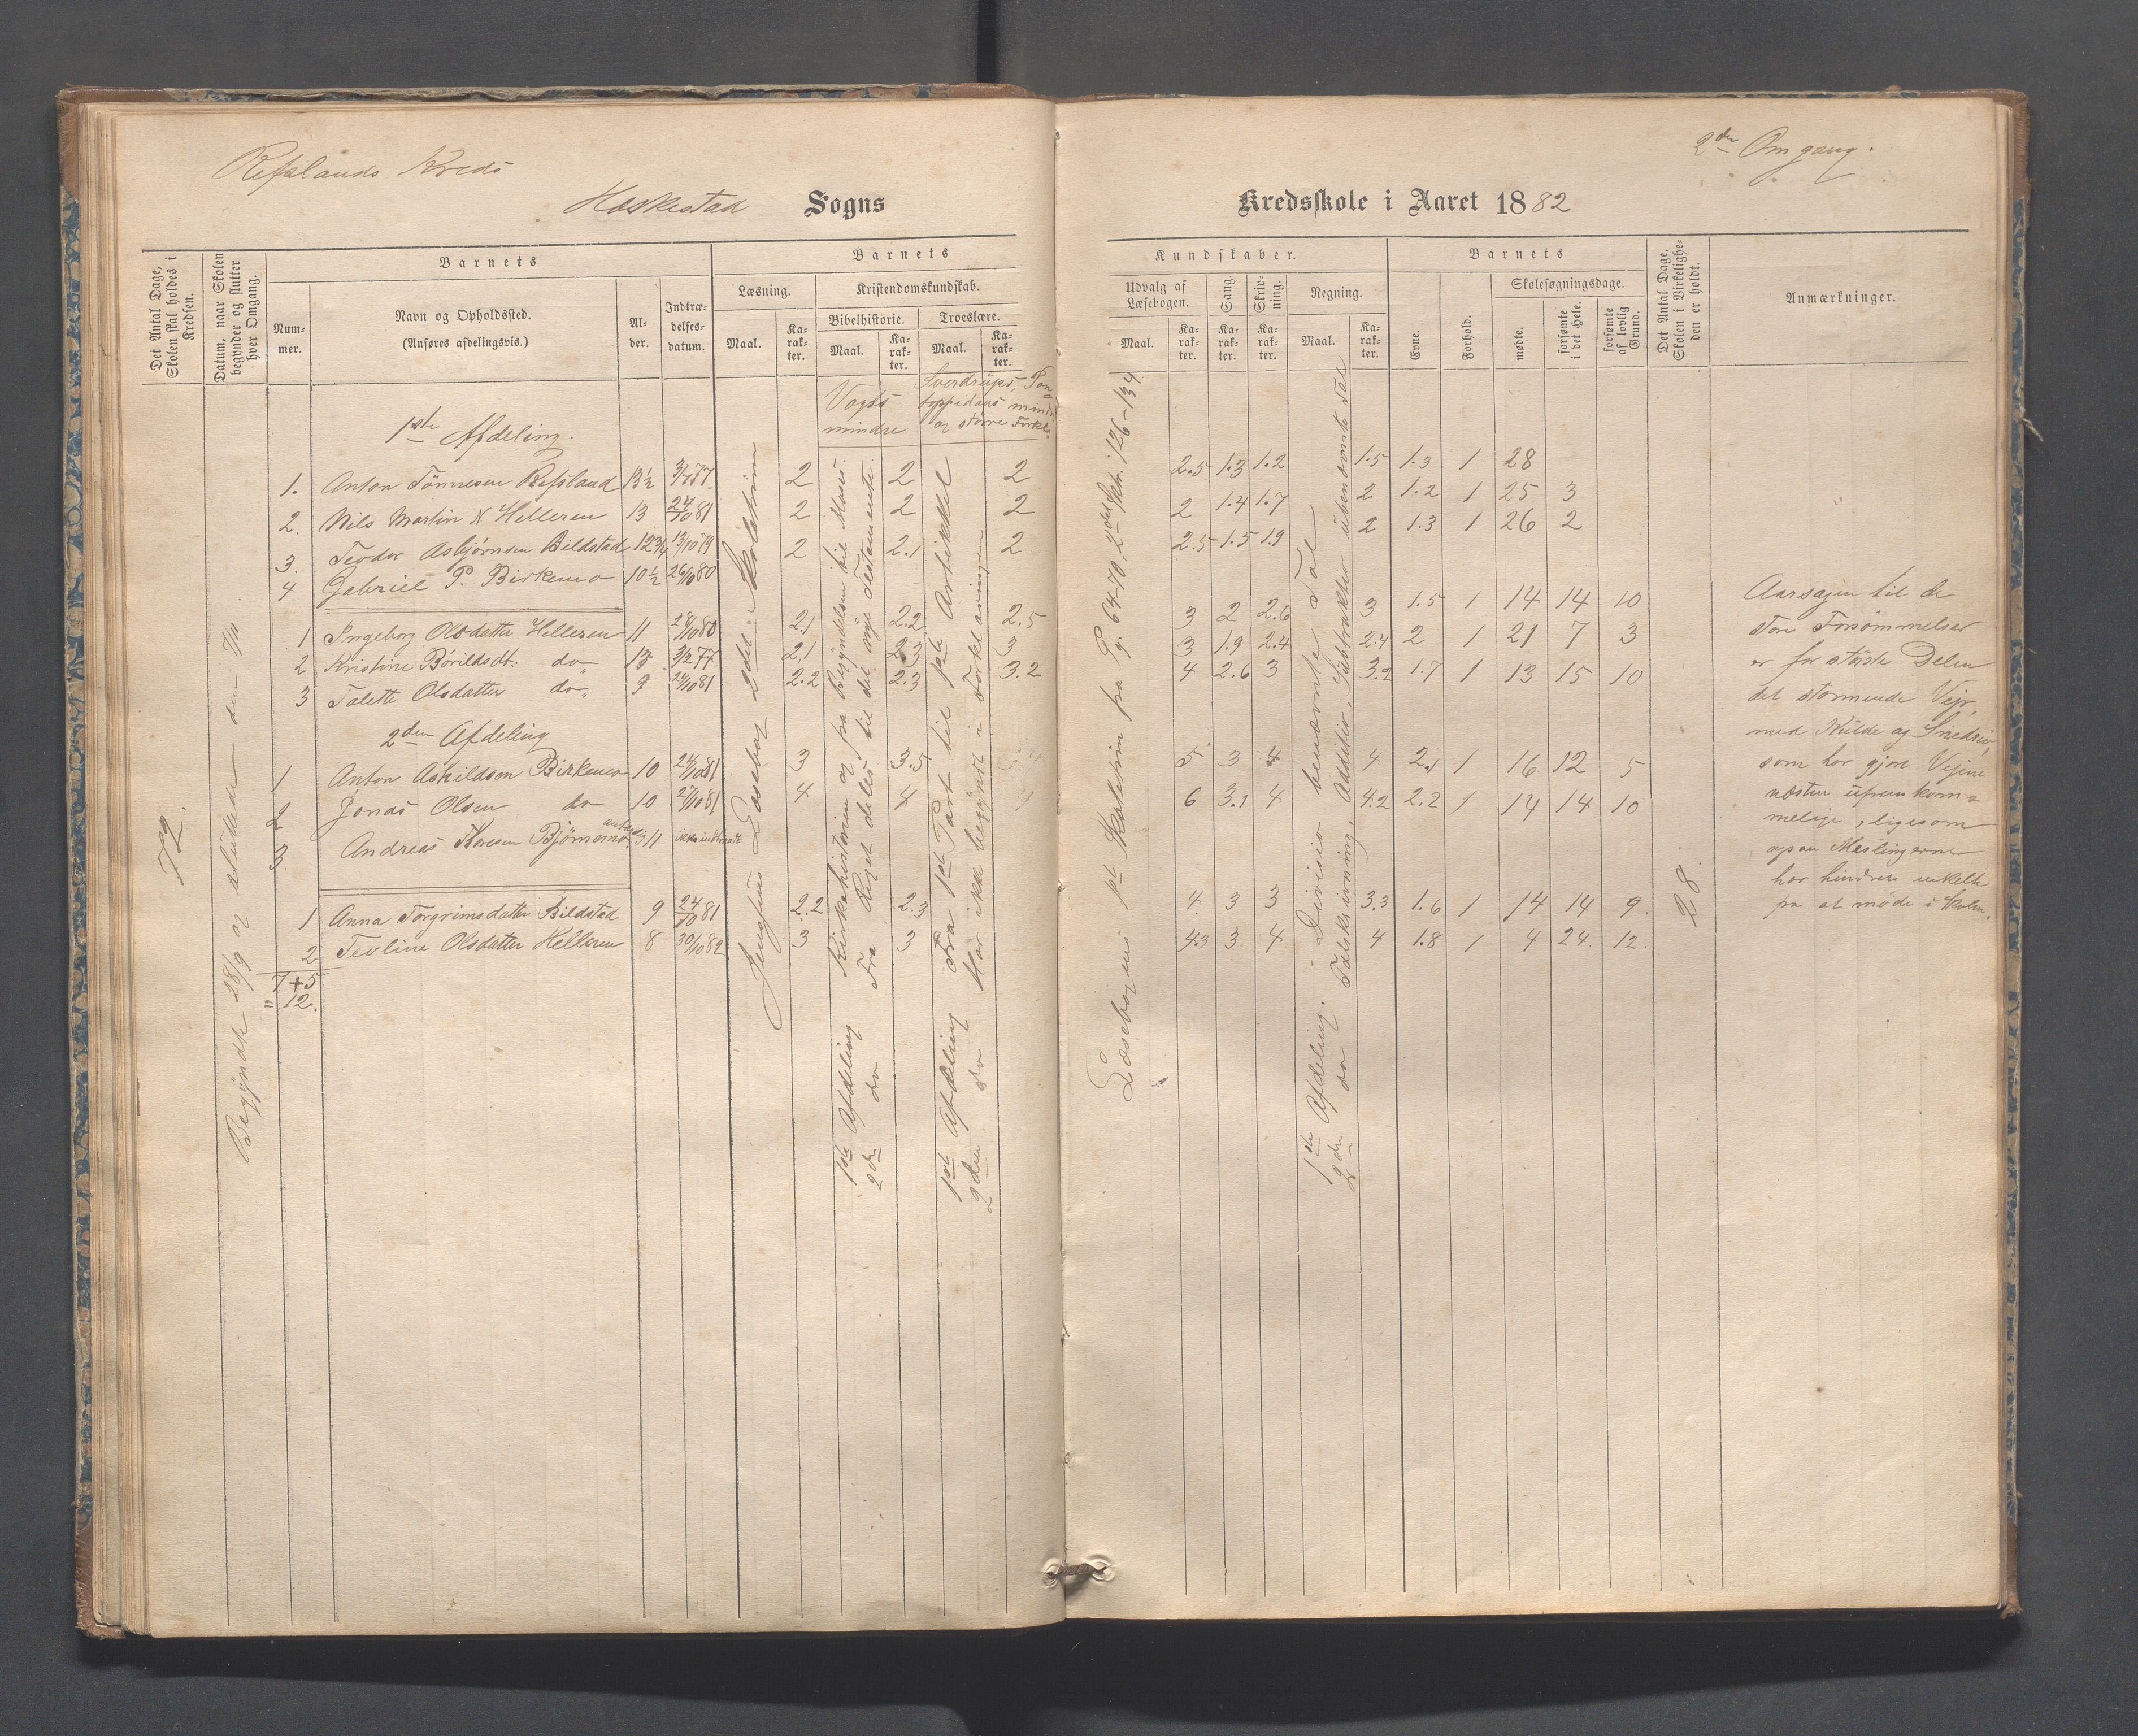 Refslands Kreds
Heskestad Sogns
2den Omgang.
Kredsskole i Aaret 1882
Det Antal Dage, Skolen skal holdes i Kredsen.
Datum, naar Skolen begynder og slutter hver Omgang.
Barnets
Num-mer.
Navn og Opholdssted.
(Anføres afdelingsvis.)
Al-der.
Indtræ-delses-datum.
Barnets
Læsning.
Kristendomskundskab.
Bibelhistorie.
Troeslære.
Maal.
Ka-rak-ter.
Maal.
Ka-rak-ter.
Maal.
Ka-rak-ter.
Kundskaber.
Udvalg af Læsebogen.
Sang.
Skriv-ning.
Regning.
Maal.
Ka-rak-ter.
Ka-rak-ter.
Ka-rak-ter.
Maal.
Ka-rak-ter.
Barnets
Evne.
Forhold.
Skolesøgningsdage.
mødte.
forsømte i det Hele.
forsømte af lovlig Grund.
Det Antal Dage, Skolen i Virkelighe-den er holdt.
Anmærkninger.
72.
Begyndte 28/9 og sluttede den
Vogts mindre
Sverdrups, Pontoppidans mindre og større Forkl.
1ste Afdeling.
1. Anton Tönnesen Refsland 13½ 3/7 77 2 2 2 2.5 1.3 1.2 1.5 1.3 1 28
2. Nils Martin N Helleren 13 24/10 81 2 2 2 2 1.4 1.7 2 1.2 1 25 3
3. Teodor Asbjørnsen Bildstad 12¾ 13/10 79 2 2.1 2 2.5 1.5 1.9 2 1.3 1 26 2
4 Gabriel P. Birkemo 10½ 26/10 80
1 Ingeborg Olsdatter Helleren 11 28/10 80 2.1 2.2 2.5 3 2 2.6 3 1.5 1 14 14 10
2 Kristine Bórildsdt. do 13 3/2 77 2.1 2.3 3 3 1.9 2.4 2.4 2 1 21 7 3
3 Talette Olsdatter do 9 24/10 81 2.2 2.3 3.2 4 2.6 3 3.2 1.7 1 13 15 10
2den Afdeling
1 Anton Askildsen Birkemo 10 24/10 81 3 3.5 5 3 4 4 2.1 1 16 12 5
2 Jonas Olsen do 10 27/10 81 4 4 6 3.1 4 4.2 2.2 1 14 14 10
3. Andreas Toresen Bjömemo 11 ikke indtraadt
1 Anna Torgrimsdatter Bildstad 9 24/10 81 2.2 2.3 4 3 3 3.3 1.6 1 14 14 9.
2 Teoline Olsdatter Helleren 8 30/10 82 3 3 4.3 3 4 4 1.8 1 4 24 12.
7+5
" 12.
Jensens Læsebog 2det Skoletrin
1ste Afdeling Kirkehistorien og fra Begyndelsen til Moses.
2den do Fra Riget deles til det nye Testamente.
1ste Afdeling Fra 1ste Part til 1ste Artikkel
2den do Har ikke begyndt i Forklaringen
Læsebogens 1ste Skoletrin fra S. 64-70, 2det Sktr. 126-134.
1ste Afdeling. Divisio benævnte Tal
2den do Talskrivning, Additio, Subtraktio ubenævnte Tal
28.
Aarsagen til de
store Forsømmelser
er for største Delen
det stormende Vejr,
med Kulde og Snedriv,
som har gjort Vejene
næsten ufremkom=
melige, ligesom
ogsaa Meslingerne
har hindret enkelte
fra at møde i Skolen.